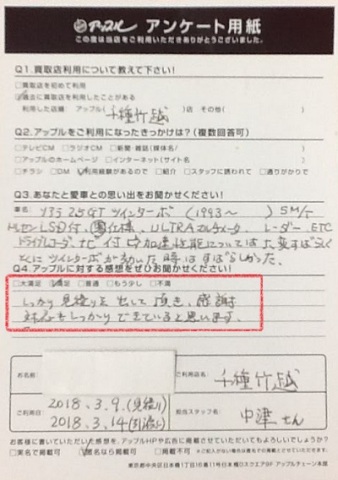 アップル アンケート用紙
この度は当店をご利用いただきありがとうございました。
Q1.買取店利用について教えて下さい!
□買取店を初めて利用
☑過去に買取店を利用したことがある
利用した店舗 アップル( 千種竹越 )店 その他( )
Q2.アップルをご利用になったきっかけは?(複数回答可)
□テレビCM □ラジオCM □新聞・雑誌(媒体名/ )
□アップルのホームページ □インターネット(サイト名 )
□チラシ □DM ☑利用経験があるので □紹介 □スタッフに誘われて □通りがかりで
Q3.あなたと愛車との思い出をお聞かせください!
車名 Y33 25GT ツインターボ (1993~ ) 5M/T
付、 ULTRA レーダー ETC
ドライブレコーダ、ナビ付 中加速性能については
ツインターボが効いた時はすばらしかった。
Q4.アップルに対する感想をぜひお聞かせください!
□大満足 ☑満足 □普通 □もう少し □不満
しっかり見積りを出して頂き、感謝
対応もしっかりできていると思います。
お名前
ご利用店名 千種竹越
ご利用日 2018.3.9.(見積り)
2018.3.14(引渡し)
担当スタッフ名 中津さん
お客様に書いていただいた感想を、アップルHPや広告に掲載させていただいてもよろしいでしょうか?
□実名で掲載可 ☑匿名なら掲載可 □掲載不可 ※ご記入がない場合は匿名で掲載させていただきます。
東京都中央区日本橋1丁目16番11号日本橋Dスクエア8F アップルチェーン本部